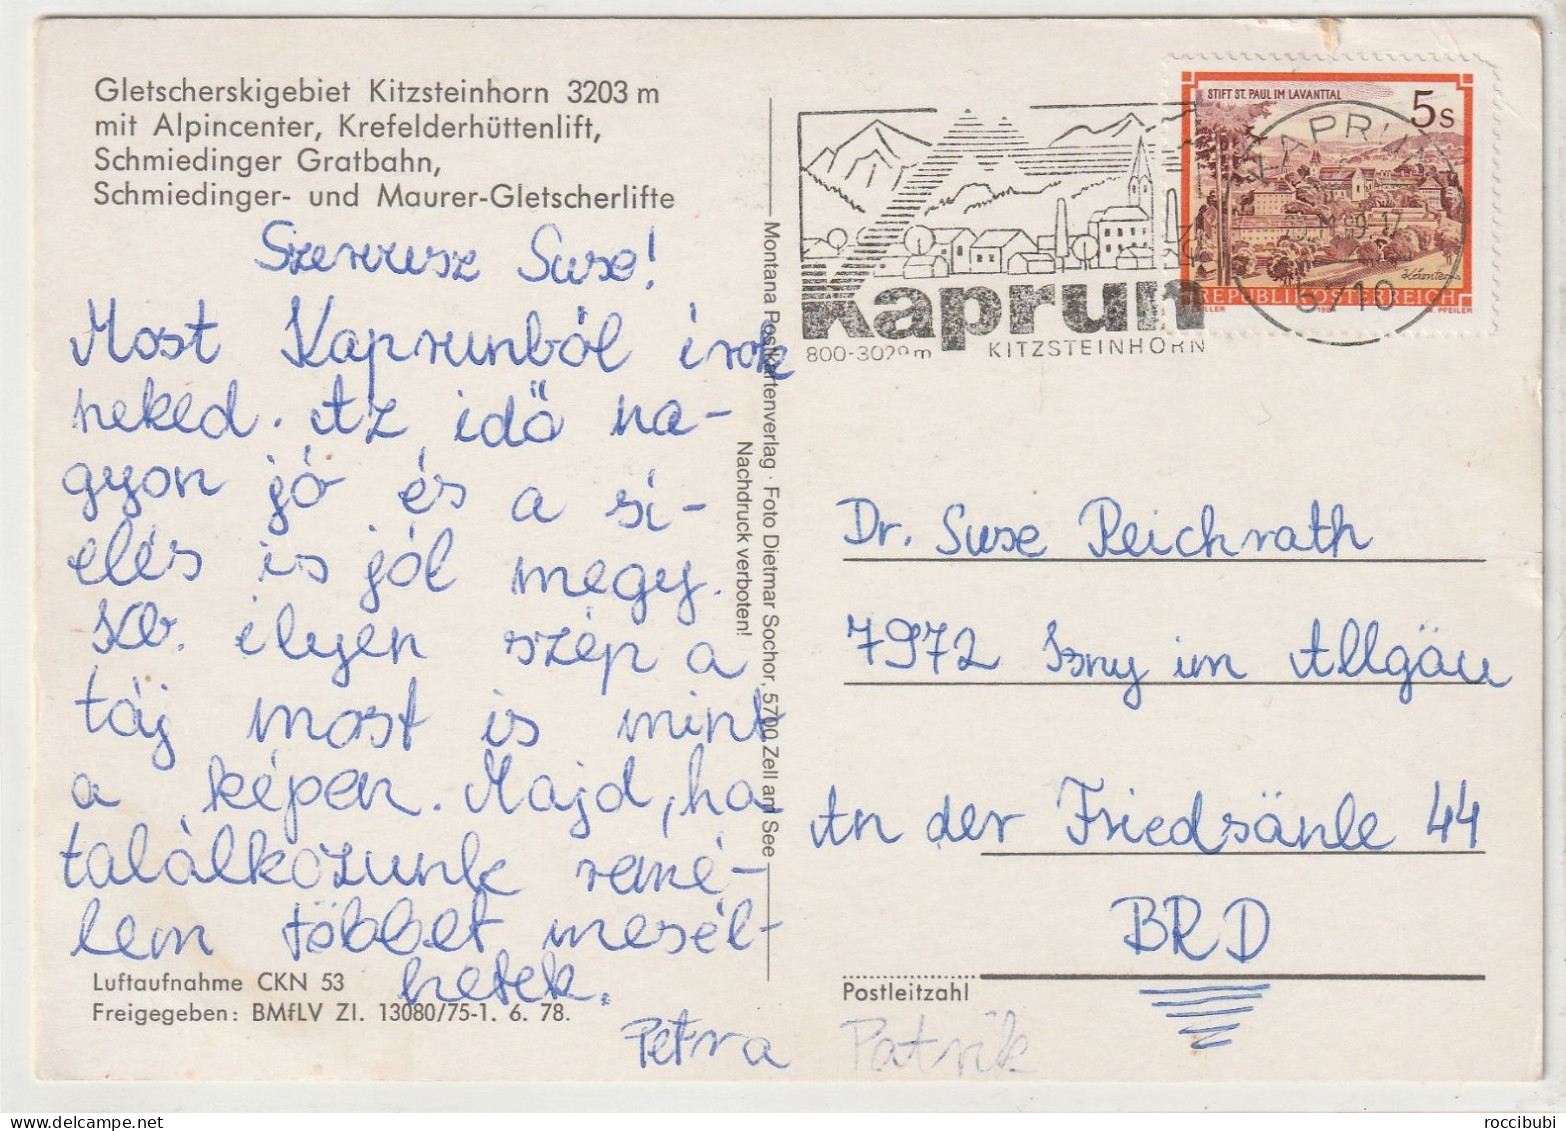 Gletscherskigebiet Kitzsteinhorn 3203 m
mit Alpincenter, Krefelderhüttenlift,
Schmiedinger Gratbahn,
Schmiedinger- und Maurer-Gletscherlifte
Szervusz Suse!
Most Kaprunból írok
neked. Az idő na-
gyon jó és a sí-
elés is jól megy.
Kb. ilyen szép a
táj most is mint
a képen. Majd, ha
találkozunk remé-
lem többet mesél-
hetek.
Petra
Patrik
Luftaufnahme CKN 53
Freigegeben: BMfLV Zl. 13080/75-1. 6. 78.
Montana Postkartenverlag · Foto Dietmar Sochor, 5700 Zell am See
Nachdruck verboten!
Kaprun
KITZSTEINHORN
STIFT ST. PAUL IM LAVANTTAL
5 S
Kärnten
REPUBLIK ÖSTERREICH
PFEILER
KAPRUN
5710
Dr. Suse Reichrath
7972 Isny im Allgäu
An der Friedsäule 44
BRD
Postleitzahl
roccibubi